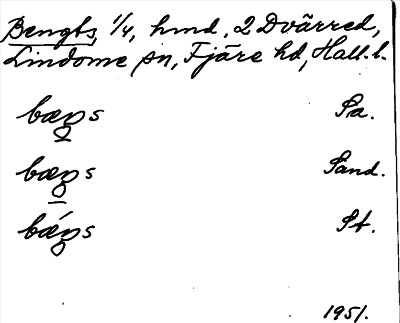 Bengts, 1/4, hmd, 2 Dvärred,
Lindome sn, Fjäre hd, Hall. l.
bæŋs Pa.
bæŋs Sand.
bǽŋs St.
1951.